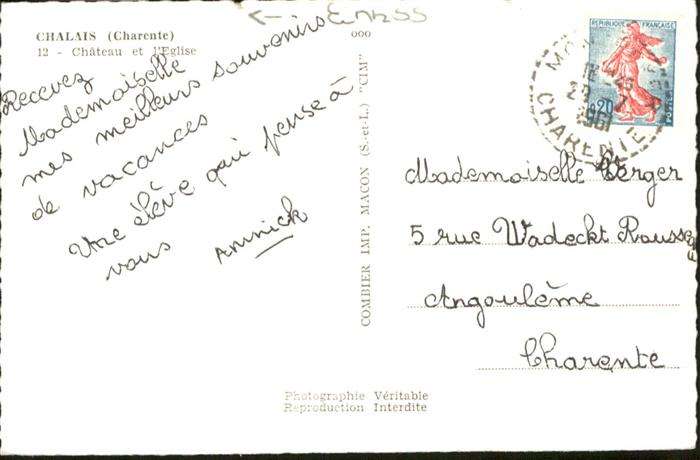 CHALAIS (Charente)
12 - Château et l'Eglise
Recevez
Mademoiselle
mes meilleurs souvenirs
de vacances
Une élève qui pense à
vous Annick
COMBIER IMP. MACON (S.-et-L.) "CIM"
REPUBLIQUE FRANÇAISE
0,20
POSTES
1961
CHARENTE
Mademoiselle Verger
5 rue Wadeckt Rousse
Angoulême
Charente
Photographie Véritable
Reproduction Interdite